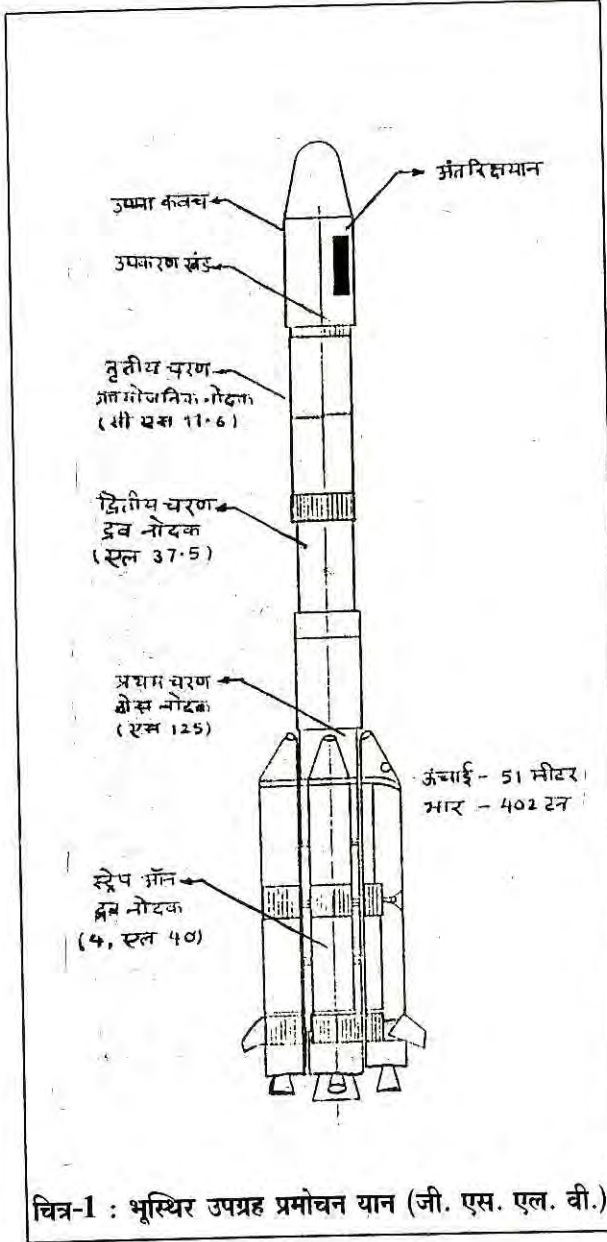 अंतरिक्षयान
उष्मा कवच
उपकरण खंड
तृतीय चरण
नोदक
(सी एस 11.6)
द्वितीय चरण
द्रव नोदक
(एल 37.5)
प्रथम चरण
ठोस नोदक
(एस 125)
ऊंचाई - 51 मीटर
भार - 402 टन
स्ट्रेप ऑन
द्रव नोदक
(4, एल 40)
चित्र-1 : भूस्थिर उपग्रह प्रमोचन यान (जी. एस. एल. वी.)